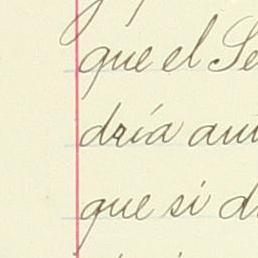 que el Se
dría aun
que si d